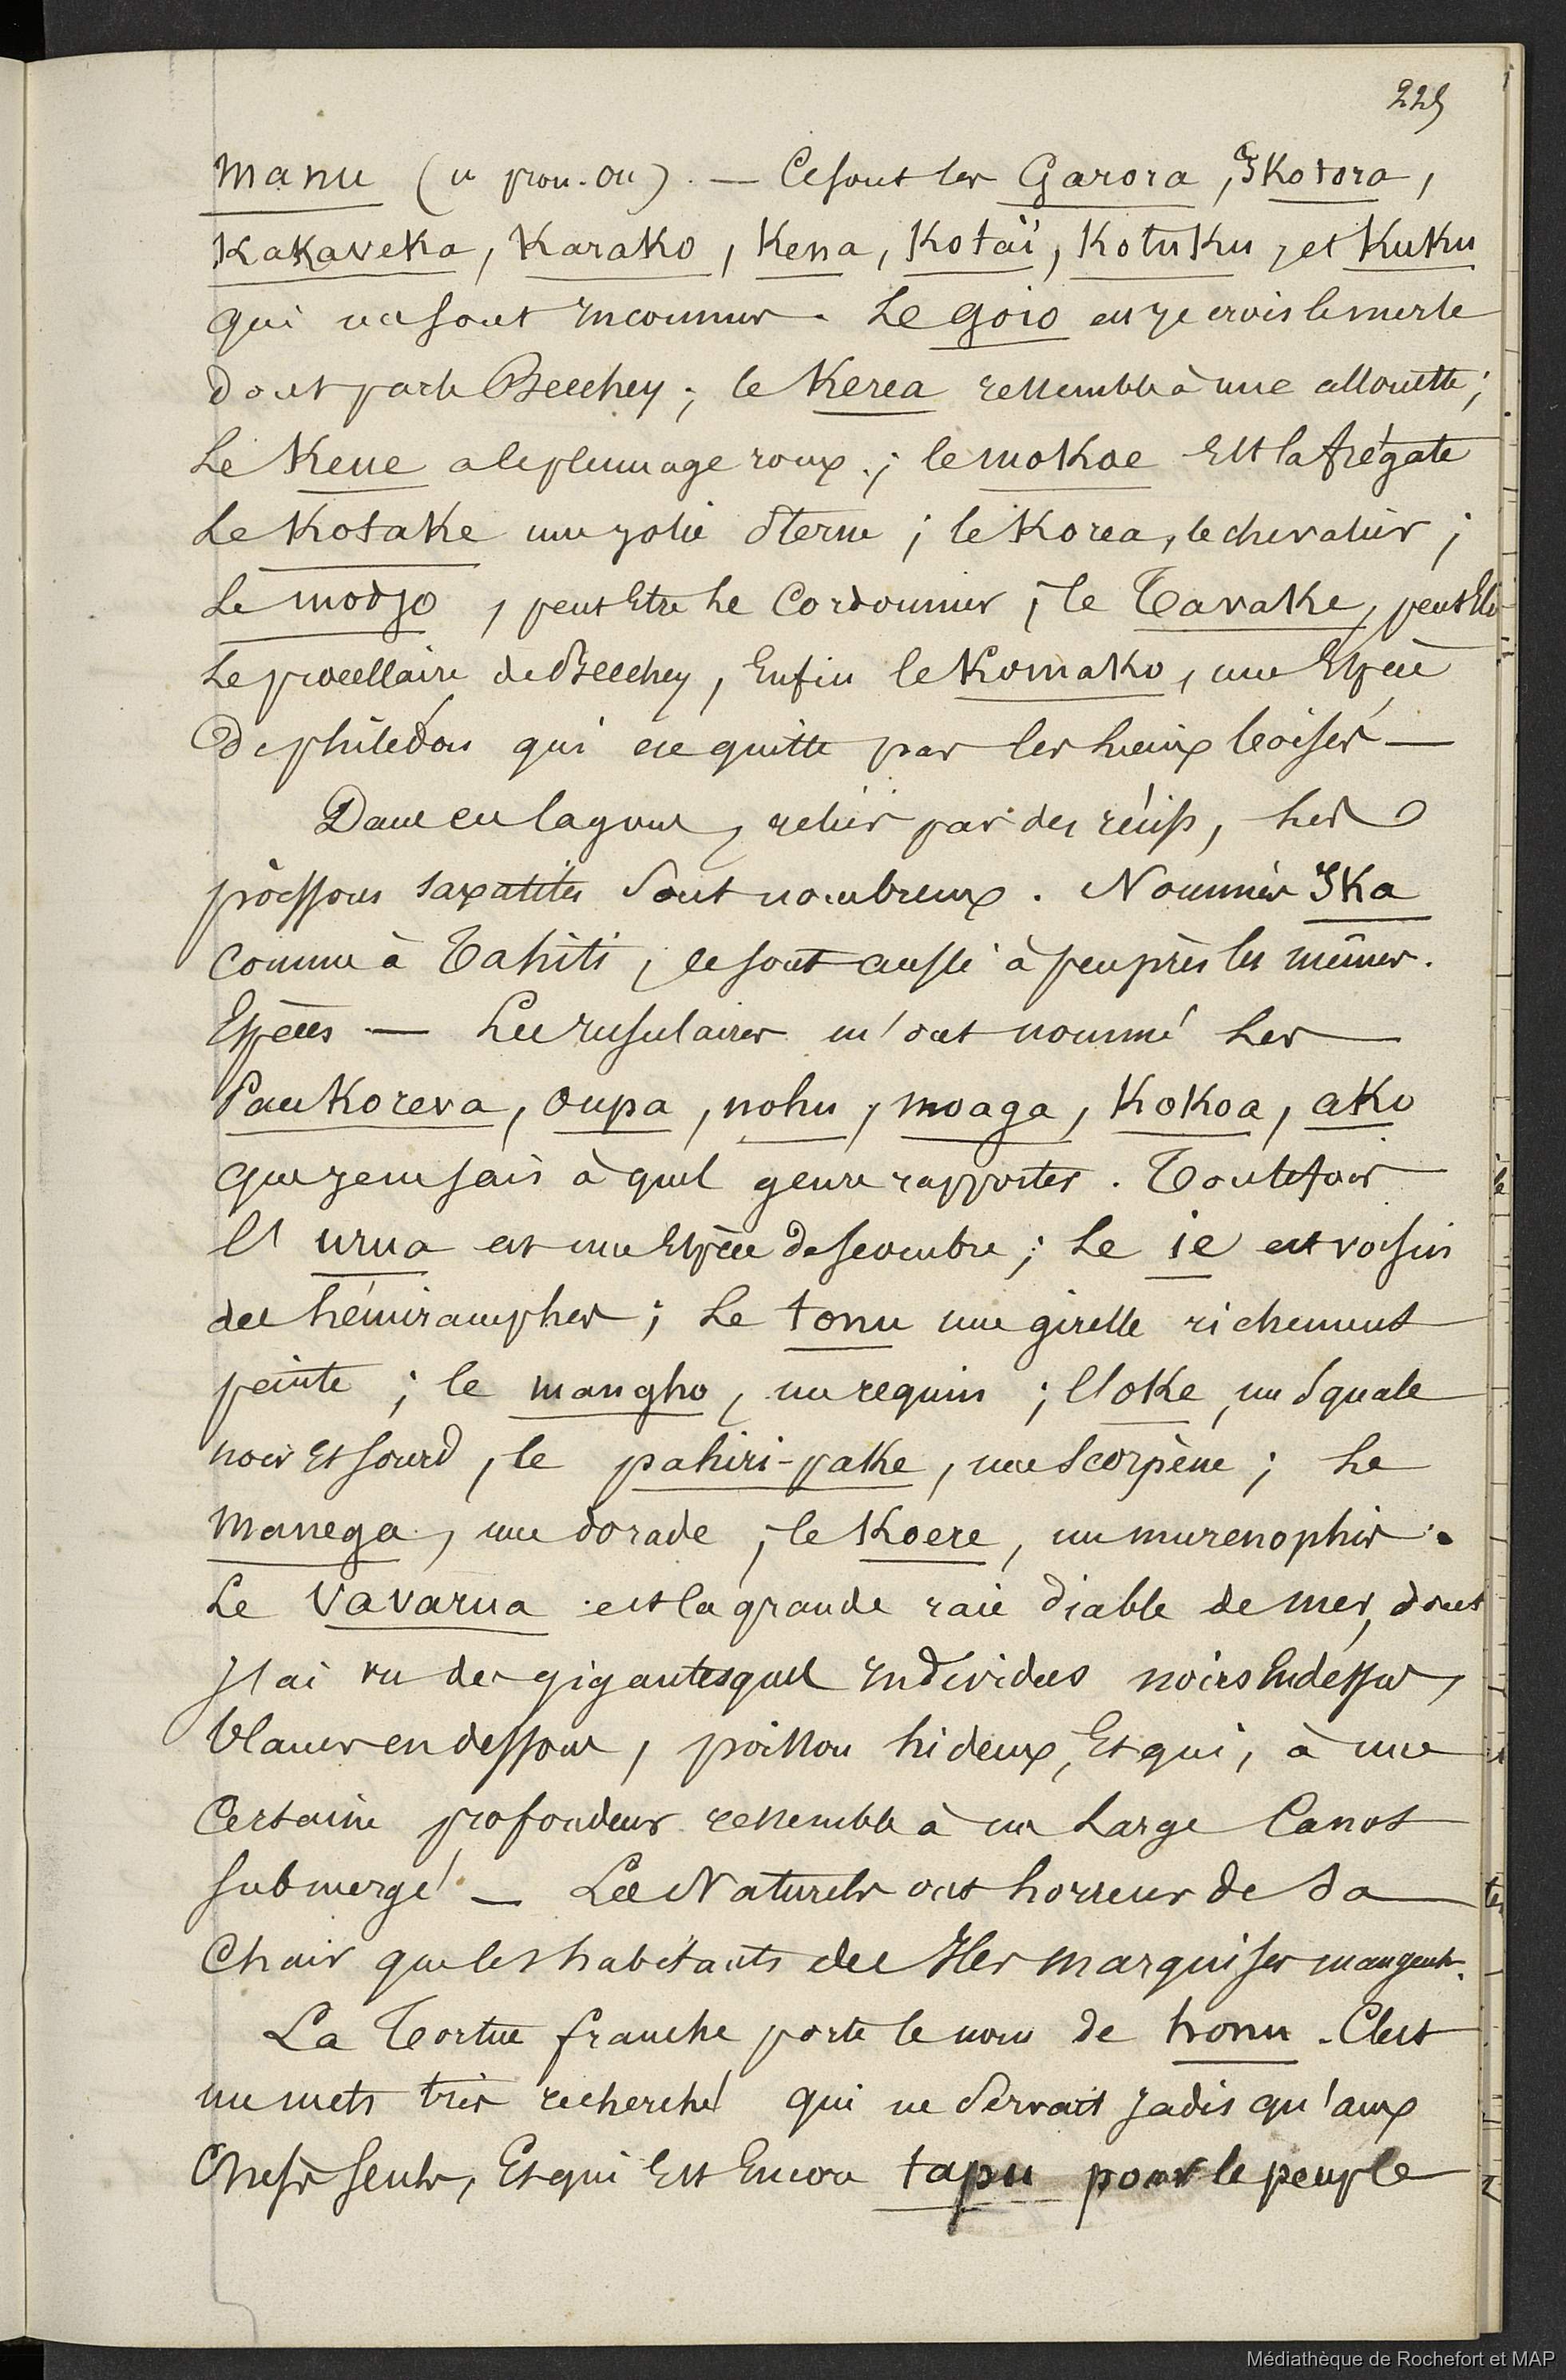 225
Manu (u pron. ou). — Ce sont les Garora, Ikotora,
Kakaveka, Karako, Kena, Kotaï, Kotuku, et Kuku
qui me sont inconnus. Le goio est je crois le merle
dont parle Beechey; le Kerea ressemble à une allouette;
Le Keue a le plumage roux; le mokoe Est la frégate
Le Kotake une jolie sterne; le Korea, le chevalier;
Le modjo, peut Etre Le Cordonnier; le Tavake, peut Etre
Le procellaire de Beechey, Enfin le Komako, une Espèce
de philédon qui ne quitte pas les lieux boisés —
Dans ces lagons, reliés par des récifs, les
poissons saxatiles sont nombreux. Nommés Ika
comme à Tahiti, ce sont aussi à peu près les mêmes.
Espèces — Les insulaires m'ont nommé les
Paukoreva, oupa, nohu, moaga, Kokoa, ako
que je ne sais à quel genre rapporter. Toutefois
l'urua est une Espèce de scombre; Le ie est voisin
des hémiramphes; Le tonu une girelle richement
peinte; le mangho, un requin; l'oke, un squale
noir Et lourd, le pahiri-pake, une scorpène; Le
Manega, une dorade; le Koere, un murenophis.
Le Vavarua est la grande raie diable de mer, dont
j'ai vu de gigantesques individus noirs En dessus,
blancs en dessous, poisson hideux, Et qui, à une
Certaine profondeur ressemble à un Large Canot
submergé — Les Naturels ont horreur de sa
Chair que les habitants des Iles marquises mangent.
La Tortue franche porte le nom de honu. C'est
un mets très recherché qui ne servait jadis qu'aux
Chefs seuls, Et qui Est Encore tapu pour le peuple
Médiathèque de Rochefort et MAP